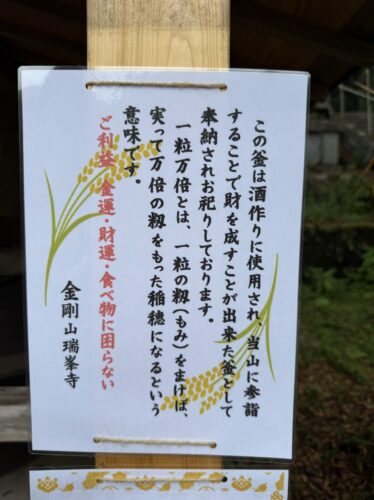 この釜は酒作りに使用され、当山に参詣
することで財を成すことが出来た釜として
奉納されお祀りしております。
一粒万倍とは、一粒の籾(もみ)をまけば、
実って万倍の籾をもった稲穂になるという
意味です。
ご利益 金運・財運・食べ物に困らない
金剛山瑞峯寺